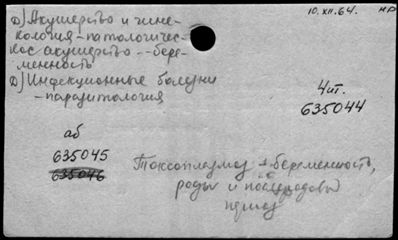 10.XII.64. нр
д) Акушерство и гине-
кология - патологичес-
кое акушерство - бере-
менность
д) Инфекционные болезни
- паразитология
Чит.
635044
аб
635045
635046
Токсоплазмоз и беременность,
роды и послеродовый
период